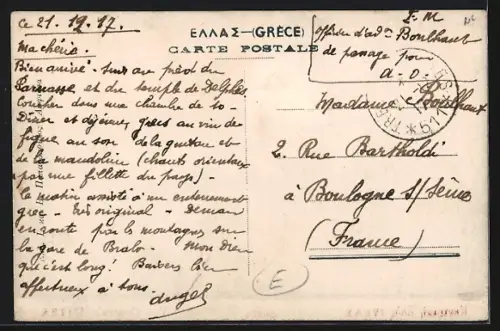 ce 21.12.17.
Ma chérie.
Bien arrivé - Suis au pied du
Parnasse et du temple de Delphes
Coucher dans une chambre de 10-
Diner et déjeuner grecs au vin de
figue au son de la guitare et
de la mandoline (chants orientaux
par une fillette du pays) -
le matin assisté à un enterrement
grec - très original - Demain
en route par les montagnes sur
la gare de Bralo - Mon Dieu
que c'est long! Baisers bien
affectueux à tous.
ΕΛΛΑΣ-(GRÈCE)
CARTE POSTALE
F.M
Officier d'ad. Boulhaut
de passage pour
A-O-
TRÉSOR
*511*
Madame Boulhaut
2. Rue Bartholdi
à Boulogne s/Seine
(France)
E